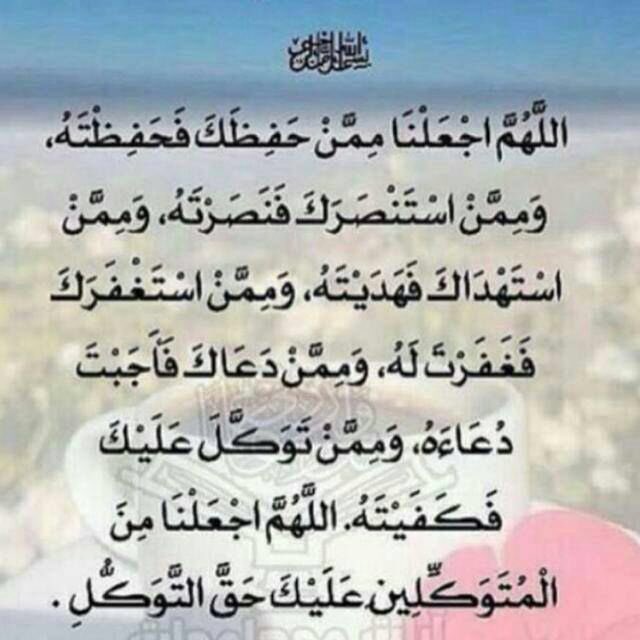 بسم الله الرحمن الرحيم
اللَّهُمَّ اجْعَلْنَا مِمَّنْ حَفِظَكَ فَحَفِظْتَهُ،
وَمِمَّنْ اسْتَنْصَرَكَ فَنَصَرْتَهُ، وَمِمَّنْ
اسْتَهْدَاكَ فَهَدَيْتَهُ، وَمِمَّنْ اسْتَغْفَرَكَ
فَغَفَرْتَ لَهُ، وَمِمَّنْ دَعَاكَ فَأَجَبْتَ
دُعَاءَهُ، وَمِمَّنْ تَوَكَّلَ عَلَيْكَ
فَكَفَيْتَهُ. اللَّهُمَّ اجْعَلْنَا مِنَ
الْمُتَوَكِّلِينَ عَلَيْكَ حَقَّ التَّوَكُّلِ.